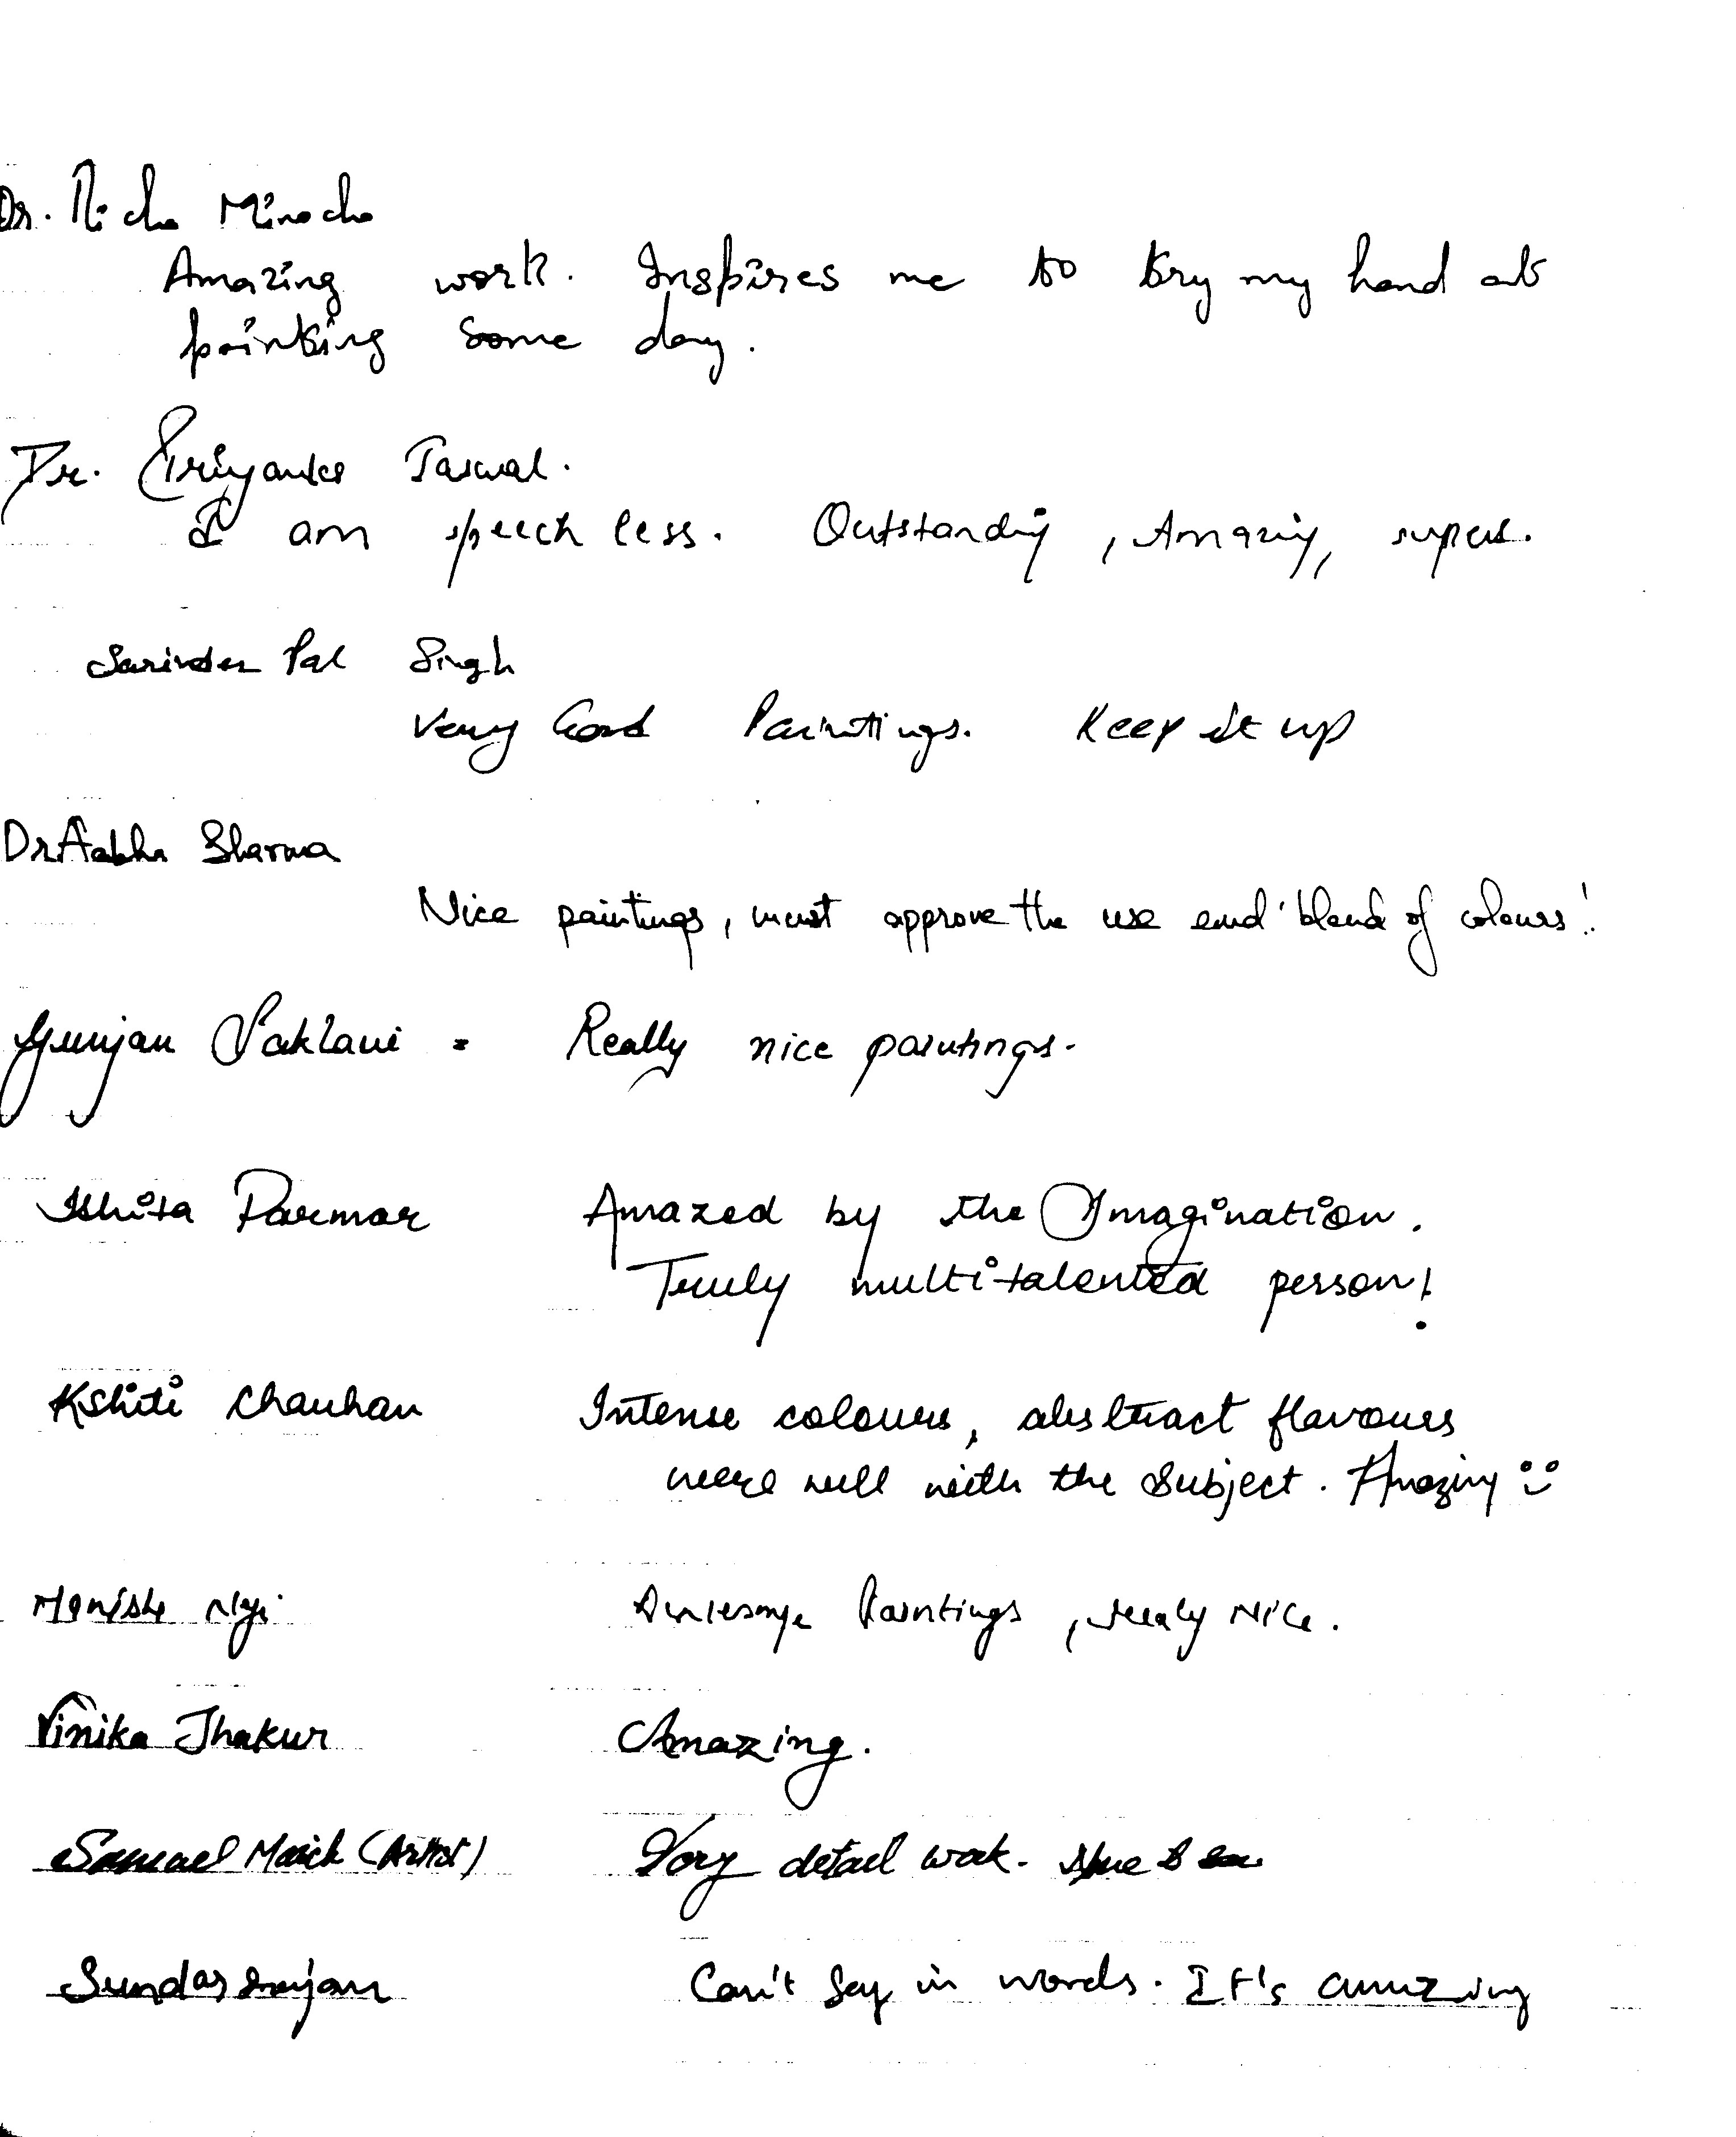 Dr. Richa Minocha
Amazing work. Inspires me to try my hand at
painting some day.
Dr. Priyanka Jaswal.
I am speechless. Outstanding, Amazing, super.
Sarinder Pal Singh
Very Good Paintings. Keep it up
Dr Aabha Sharma
Nice paintings, must approve the use and 'blend of colours'!
Gunjan Saklani - Really nice paintings.
Ishita Parmar Amazed by the Imagination.
Truly multitalented person!
Kshiti Chauhan Intense colours, abstract flavours
were well with the subject. Amazing
Manish Paintings, realy Nice.
Vinika Thakur Amazing.
Samuel (Artist) Very detail work.
Can't Say in words. It's amazing